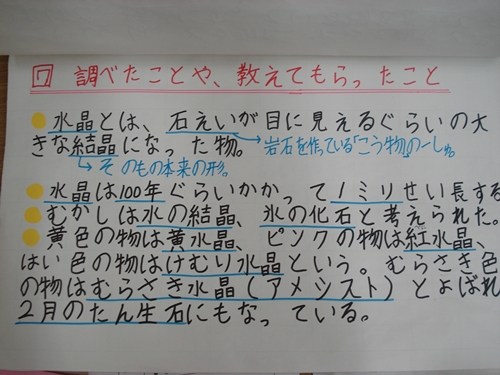 7 調べたことや、教えてもらったこと
水晶とは、石えいが目に見えるぐらいの大
きな結晶になった物。
→岩石を作っている「こう物」の一しゅ。
→そのもの本来の形。
水晶は100年ぐらいかかって1ミリせい長する
むかしは水の結晶、氷の化石と考えられた。
黄色の物は黄水晶、ピンクの物は紅水晶、
はい色の物はけむり水晶という。むらさき色
の物はむらさき水晶(アメシスト)とよばれ
2月のたん生石にもなっている。